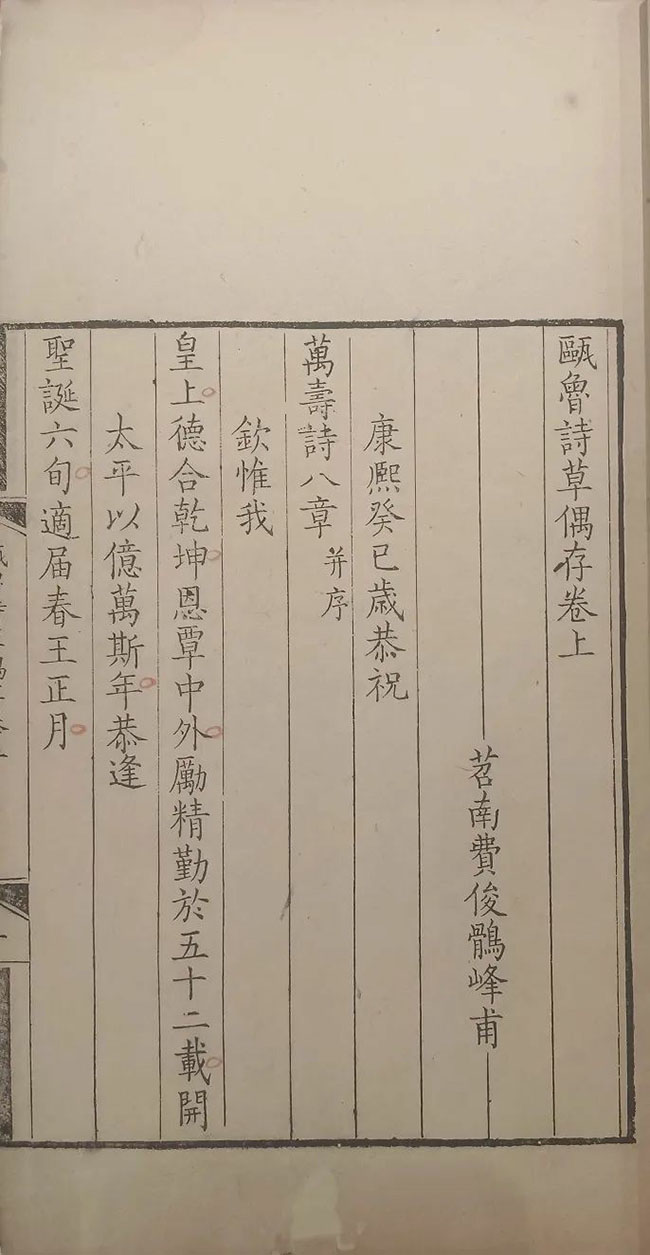 甌魯詩草偶存卷上
苕南費俊鶻峰甫
康熙癸巳歲恭祝
萬壽詩八章 并序
欽惟我
皇上德合乾坤恩覃中外勵精勤於五十二載開
太平以億萬斯年恭逢
聖誕六旬適届春王正月